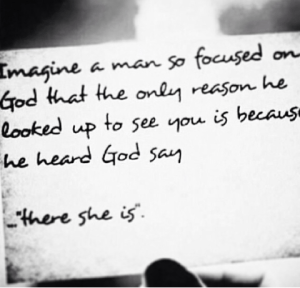 Imagine a man so focused on
God that the only reason he
looked up to see you is because
he heard God say
_"there she is".